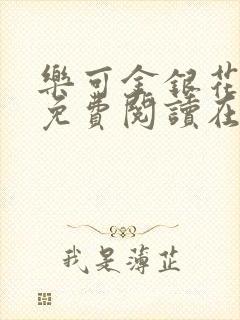 樂可金銀花
免費閱讀在
我是薄芷